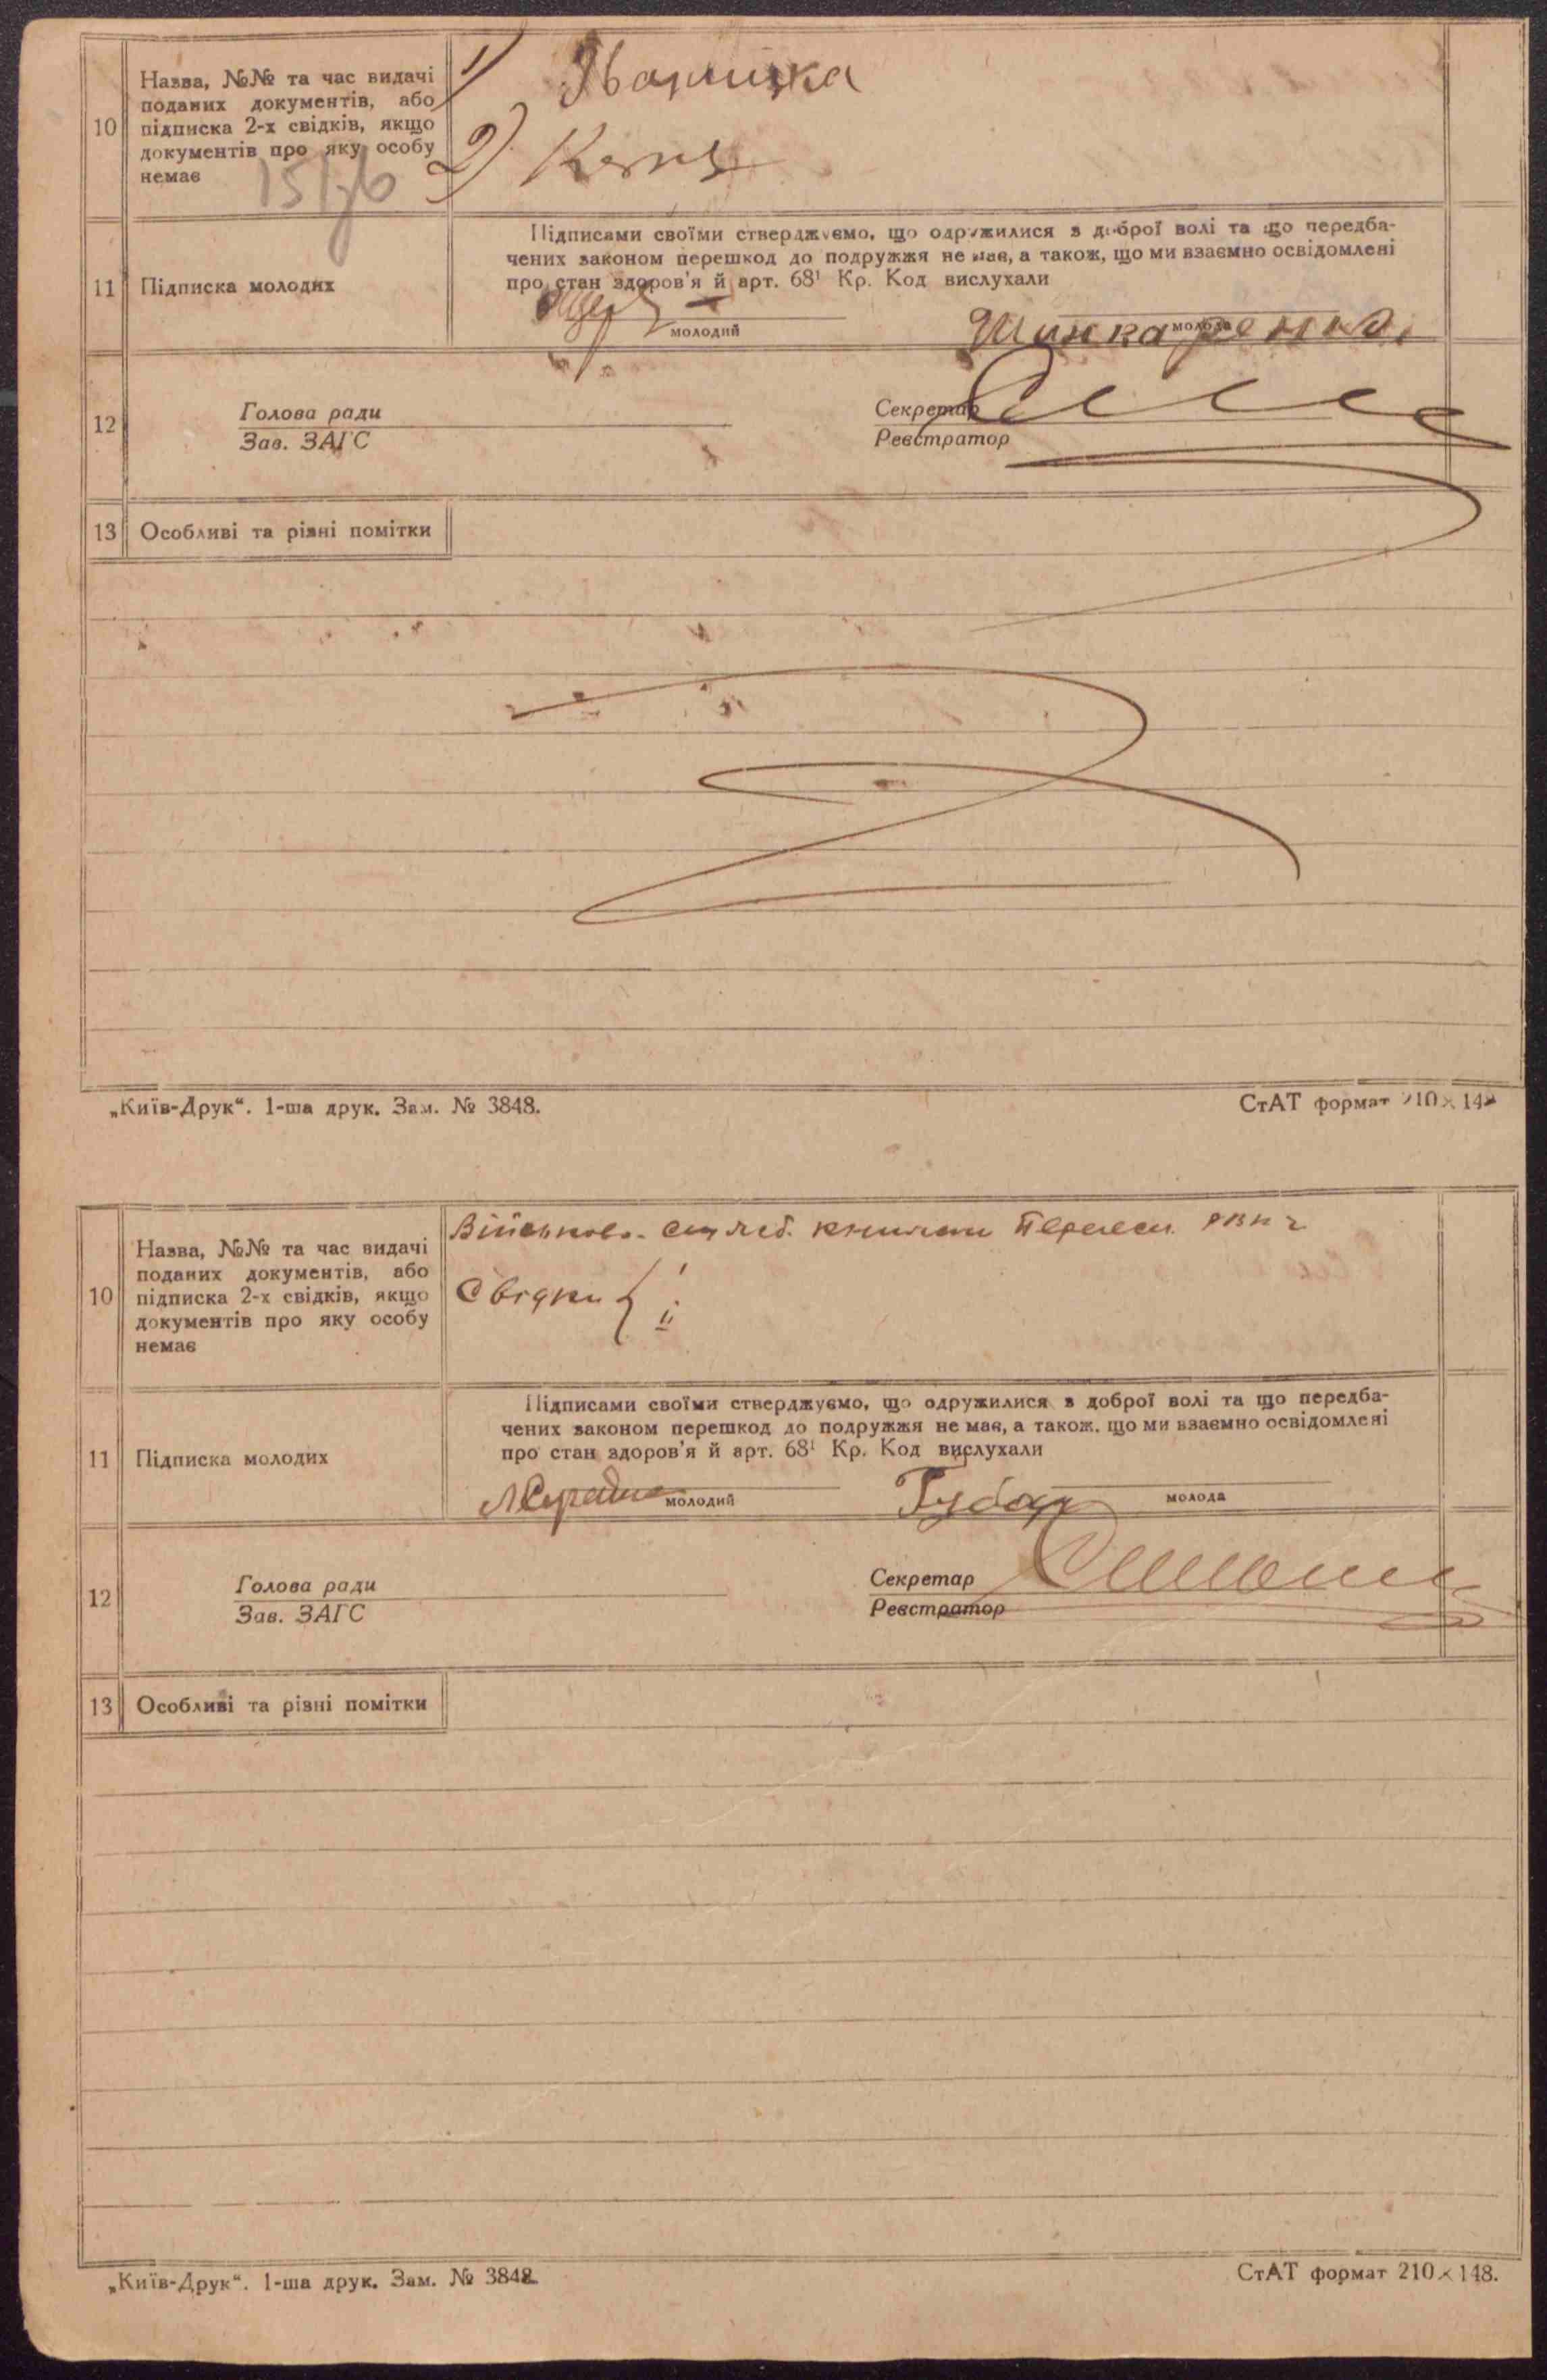 10
Назва, №№ та час видачі
поданих документів, або
підписка 2-х свідків, якщо
документів про яку особу
немає
1)
2)
11
Підписка молодих
Підписами своїми стверджуємо, що одружилися з доброї волі та що передба-
чених законом перешкод до подружжя не має, а також, що ми взаємно освідомлені
про стан здоров'я й арт. 68¹ Кр. Код вислухали
молодий
молода
Шинкаренко
12
Голова ради
Зав. ЗАГС
Секретар
Реєстратор
13
Особливі та різні помітки
„Київ-Друк“. 1-ша друк. Зам. № 3848.
СтАТ формат 210×148
10
Назва, №№ та час видачі
поданих документів, або
підписка 2-х свідків, якщо
документів про яку особу
немає
Військово-
Свідки { I
II
11
Підписка молодих
Підписами своїми стверджуємо, що одружилися з доброї волі та що передба-
чених законом перешкод до подружжя не має, а також, що ми взаємно освідомлені
про стан здоров'я й арт. 68¹ Кр. Код вислухали
молодий
Губар
молода
12
Голова ради
Зав. ЗАГС
Секретар
Реєстратор
13
Особливі та різні помітки
„Київ-Друк“. 1-ша друк. Зам. № 3848.
СтАТ формат 210×148.